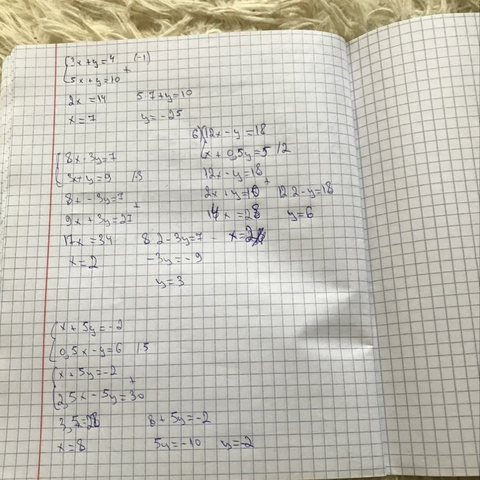 {3x+y=4 (-1)
{5x+y=10 +
2x=14 5·7+y=10
x=7 y=-25
{8x-3y=7
{3x+y=9 /3
8x-3y=7
9x+3y=27 +
17x=34 8·2-3y=7
x=2 -3y=-9
y=3
б) {12x-y=18
{x+0,5y=5 /2
12x-y=18
2x+y=10 + 12·2-y=18
14x=28 y=6
x=2
{x+5y=-2
{0,5x-y=6 /5
{x+5y=-2
{2,5x-5y=30 +
3,5=28 8+5y=-2
x=8 5y=-10 y=-2